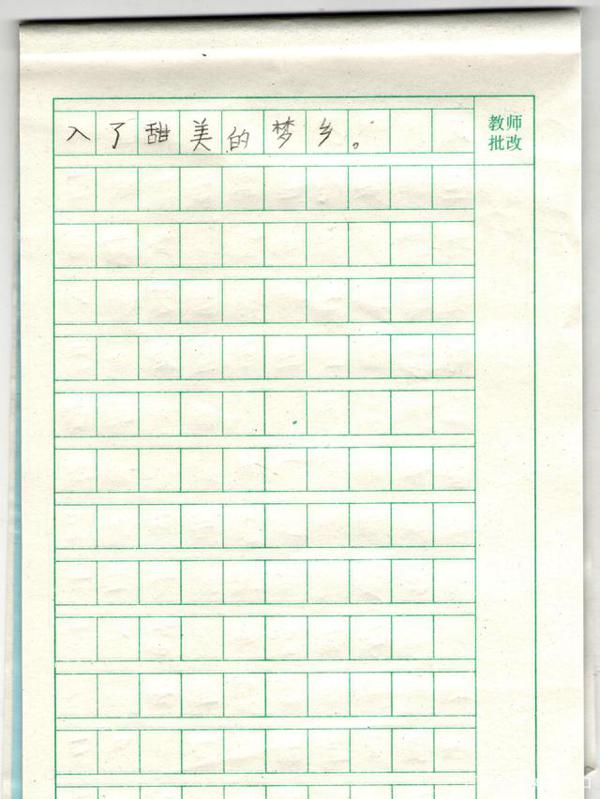 入了甜美的梦乡。
教师
批改